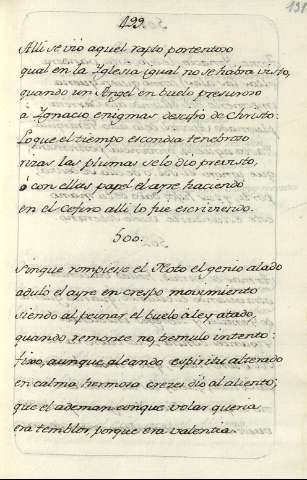 131
499.
Alli se vio aquel rapto portentoso
qual en la Iglesia igual no se habra visto,
quando un Angel en buelo presuroso
a Ignacio enigmas descifró de Christo:
Lo que el tiempo escondia tenebroso
rizas las plumas se lo dio previsto,
ó con ellas papel el ayre haciendo
en el Cefiro alli lo fue escriviendo.
500.
Sin que rompiese el Noto el genio alado
aduló el ayre en crespo movimiento
siendo al peinar el buelo a ley atado
quando remonte no, tremulo intento:
fixo, aunque aleando espiritu alterado
en calma, hermosa crezes dio al aliento;
que el ademan conque volar queria
era temblor, porque era valentia.